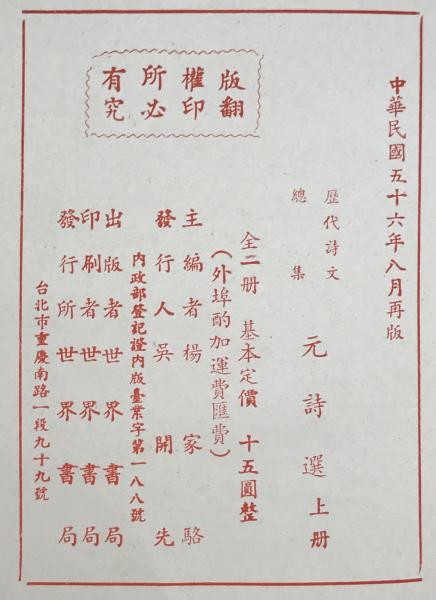 中華民國五十六年八月再版
版權所有
翻印必究
歷代詩文
總集
元詩選上册
全二册 基本定價 十五圓整
(外埠酌加運費匯費)
主編者楊家駱
發行人吳開先
內政部登記證內版臺業字第一八八號
出版者世界書局
印刷者世界書局
發行所世界書局
台北市重慶南路一段九十九號